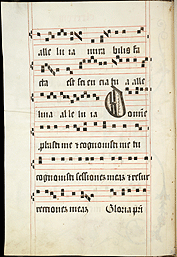 alle lu ia mira bilis fa
cta est sci en cia tu a alle
luia alle lu ia Domine
probasti me et cognovisti me tu
cognovisti sessionem meam et resur
rectionem meam Gloria pri